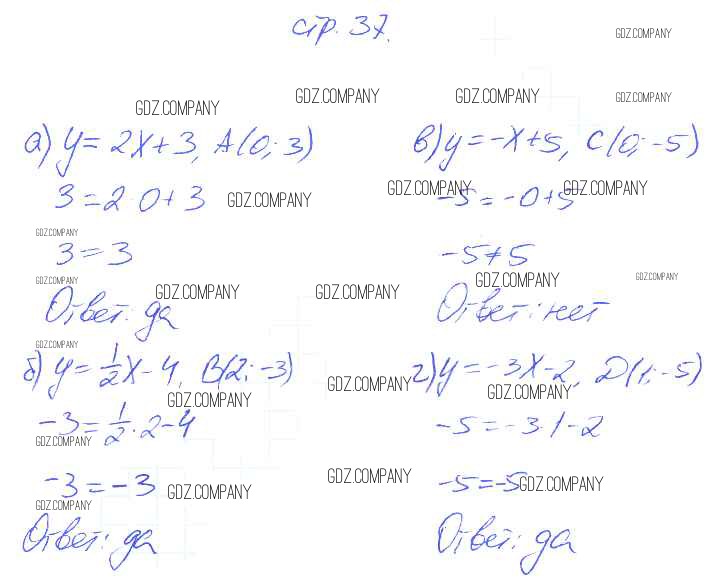 стр. 37.
GDZ.COMPANY
GDZ.COMPANY
GDZ.COMPANY
GDZ.COMPANY
GDZ.COMPANY
а) y = 2x + 3, A(0; 3)
3 = 2·0 + 3
GDZ.COMPANY
GDZ.COMPANY
3 = 3
GDZ.COMPANY
GDZ.COMPANY
GDZ.COMPANY
Ответ: да
GDZ.COMPANY
б) y = 1/2 x - 4, B(2; -3)
GDZ.COMPANY
GDZ.COMPANY
-3 = 1/2 · 2 - 4
GDZ.COMPANY
-3 = -3
GDZ.COMPANY
GDZ.COMPANY
GDZ.COMPANY
Ответ: да
в) y = -x + 5, C(0; -5)
GDZ.COMPANY
GDZ.COMPANY
-5 = -0 + 5
-5 ≠ 5
GDZ.COMPANY
GDZ.COMPANY
Ответ: нет
г) y = -3x - 2, D(1; -5)
GDZ.COMPANY
-5 = -3·1 - 2
-5 = -5
GDZ.COMPANY
Ответ: да